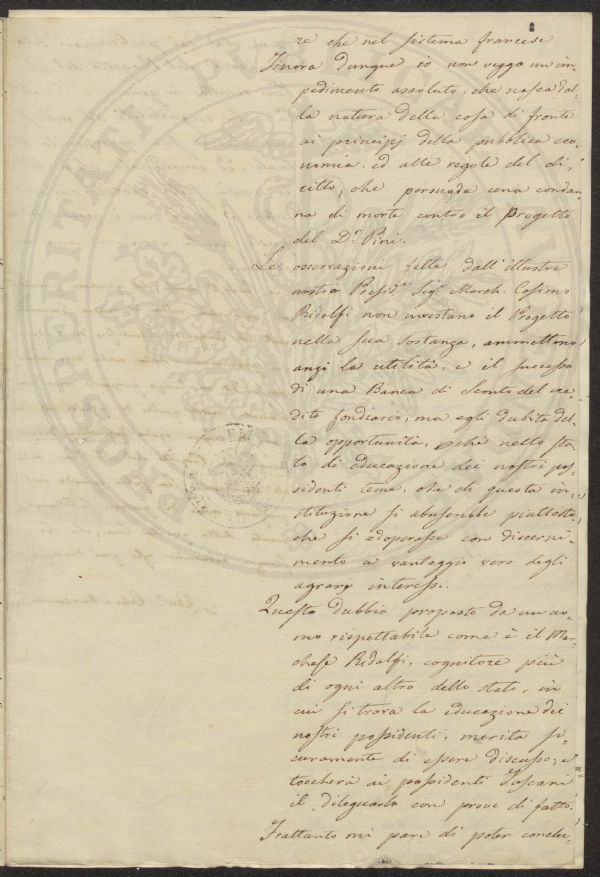 re che nel sistema francese
Finora dunque io non veggo un im=
pedimento assoluto, che nasca dal=
la natura della cosa di fronte
ai principj della pubblica eco=
nomia, ed alle regole del di=
ritto, che persuada una condan=
na di morte contro il Progetto
del D.r Pini.
Le osservazioni fatte dall'illustre
nostro Presid.e Sig. March. Cosimo
Ridolfi non investano il Progetto
nella sua sostanza, ammettono
anzi la utilità, e il successo
di una Banca di Sconto del cre=
dito fondiario, ma egli dubita del=
la opportunità, pchè nello sta=
to di educazione dei nostri pos=
sidenti teme, che di questa in=
stituzione si abuserebbe piuttosto,
che si adoperasse con discerni=
mento a vantaggio vero degli
agrarj interessi.
Questo dubbio proposto da un uo=
mo rispettabile come è il Mar=
chese Ridolfi, cognitore più
di ogni altro dello stato, in
cui si trova la educazione dei
nostri possidenti, merita si=
curamente di essere discusso; e
toccherà ai possidenti Toscani
il dileguarlo con prove di fatto.
Frattanto mi pare di poter conclu=
PROSPERITATI PVB